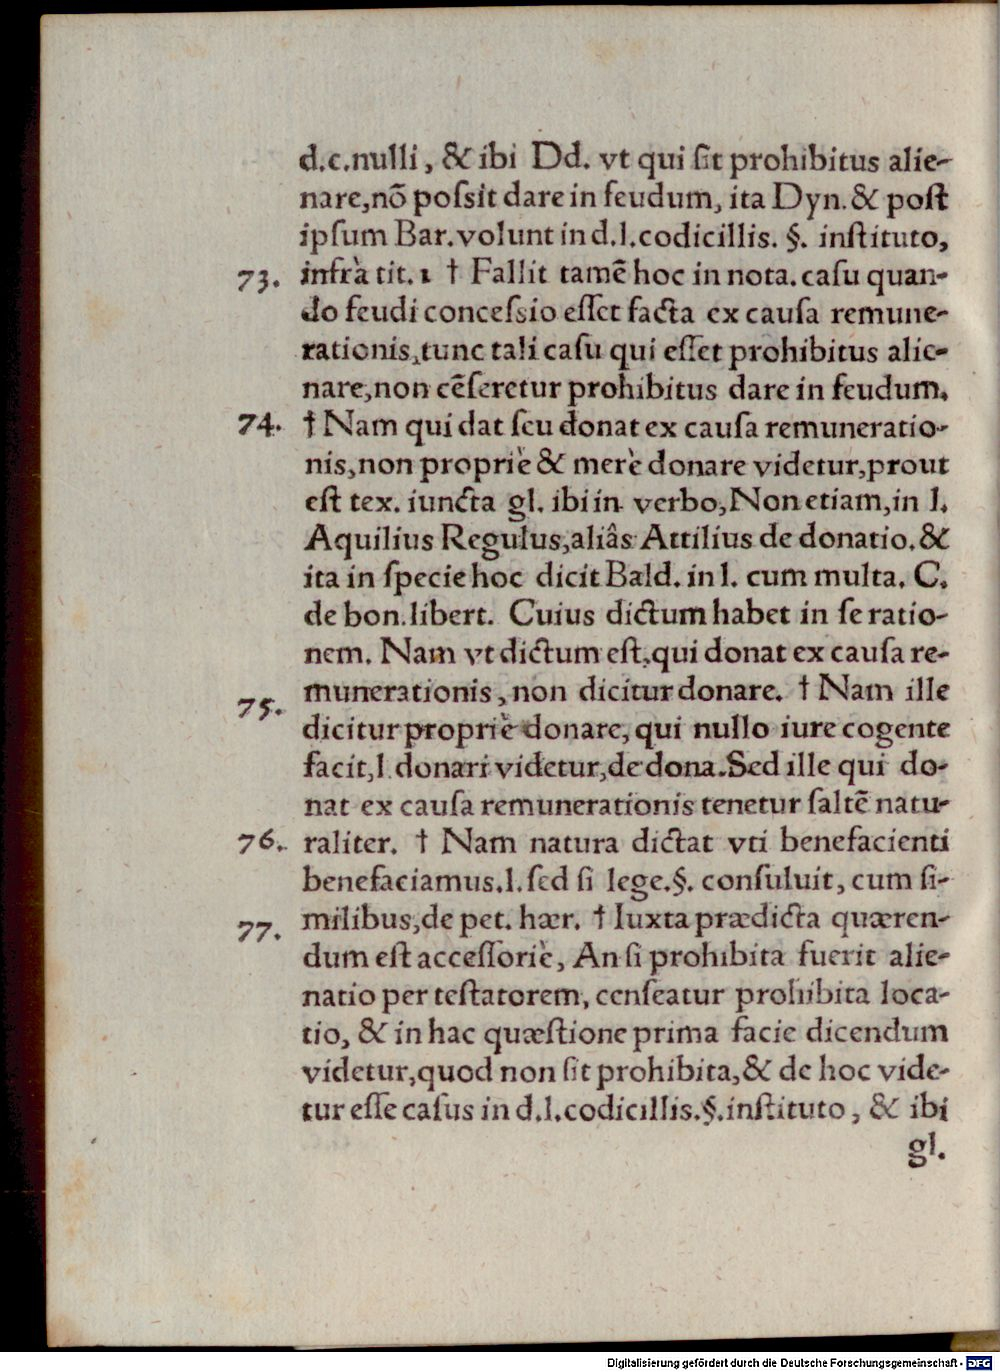 d.c.nulli, & ibi Dd. vt qui ſit prohibitus alie-
nare,nō poſsit dare in feudum, ita Dyn. & poſt
ipſum Bar. volunt in d.l.codicillis. §. inſtituto,
73. infrà tit. 1 † Fallit tamē hoc in nota. caſu quan-
do feudi conceſsio eſſet facta ex cauſa remune-
rationis, tunc tali caſu qui eſſet prohibitus alie-
nare,non cēſeretur prohibitus dare in feudum.
74. † Nam qui dat ſeu donat ex cauſa remuneratio-
nis,non propriè & merè donare videtur,prout
eſt tex. iuncta gl. ibi in verbo,Non etiam,in l.
Aquilius Regulus,aliâs Attilius de donatio. &
ita in ſpecie hoc dicit Bald. in l. cum multa. C.
de bon.libert. Cuius dictum habet in ſe ratio-
nem. Nam vt dictum eſt,qui donat ex cauſa re-
munerationis, non dicitur donare. † Nam ille
75. dicitur propriè donare, qui nullo iure cogente
facit,l.donari videtur,de dona.Sed ille qui do-
nat ex cauſa remunerationis tenetur ſaltē natu-
76. raliter. † Nam natura dictat vti benefacienti
benefaciamus.l.ſed ſi lege.§. conſuluit, cum ſi-
77. milibus,de pet. hær. † Iuxta prædicta quæren-
dum eſt acceſſoriè, An ſi prohibita fuerit alie-
natio per teſtatorem, cenſeatur prohibita loca-
tio, & in hac quæſtione prima facie dicendum
videtur,quod non ſit prohibita,& de hoc vide-
tur eſſe caſus in d.l.codicillis.§.inſtituto, & ibi
gl.
Digitalisierung gefördert durch die Deutsche Forschungsgemeinschaft - DFG